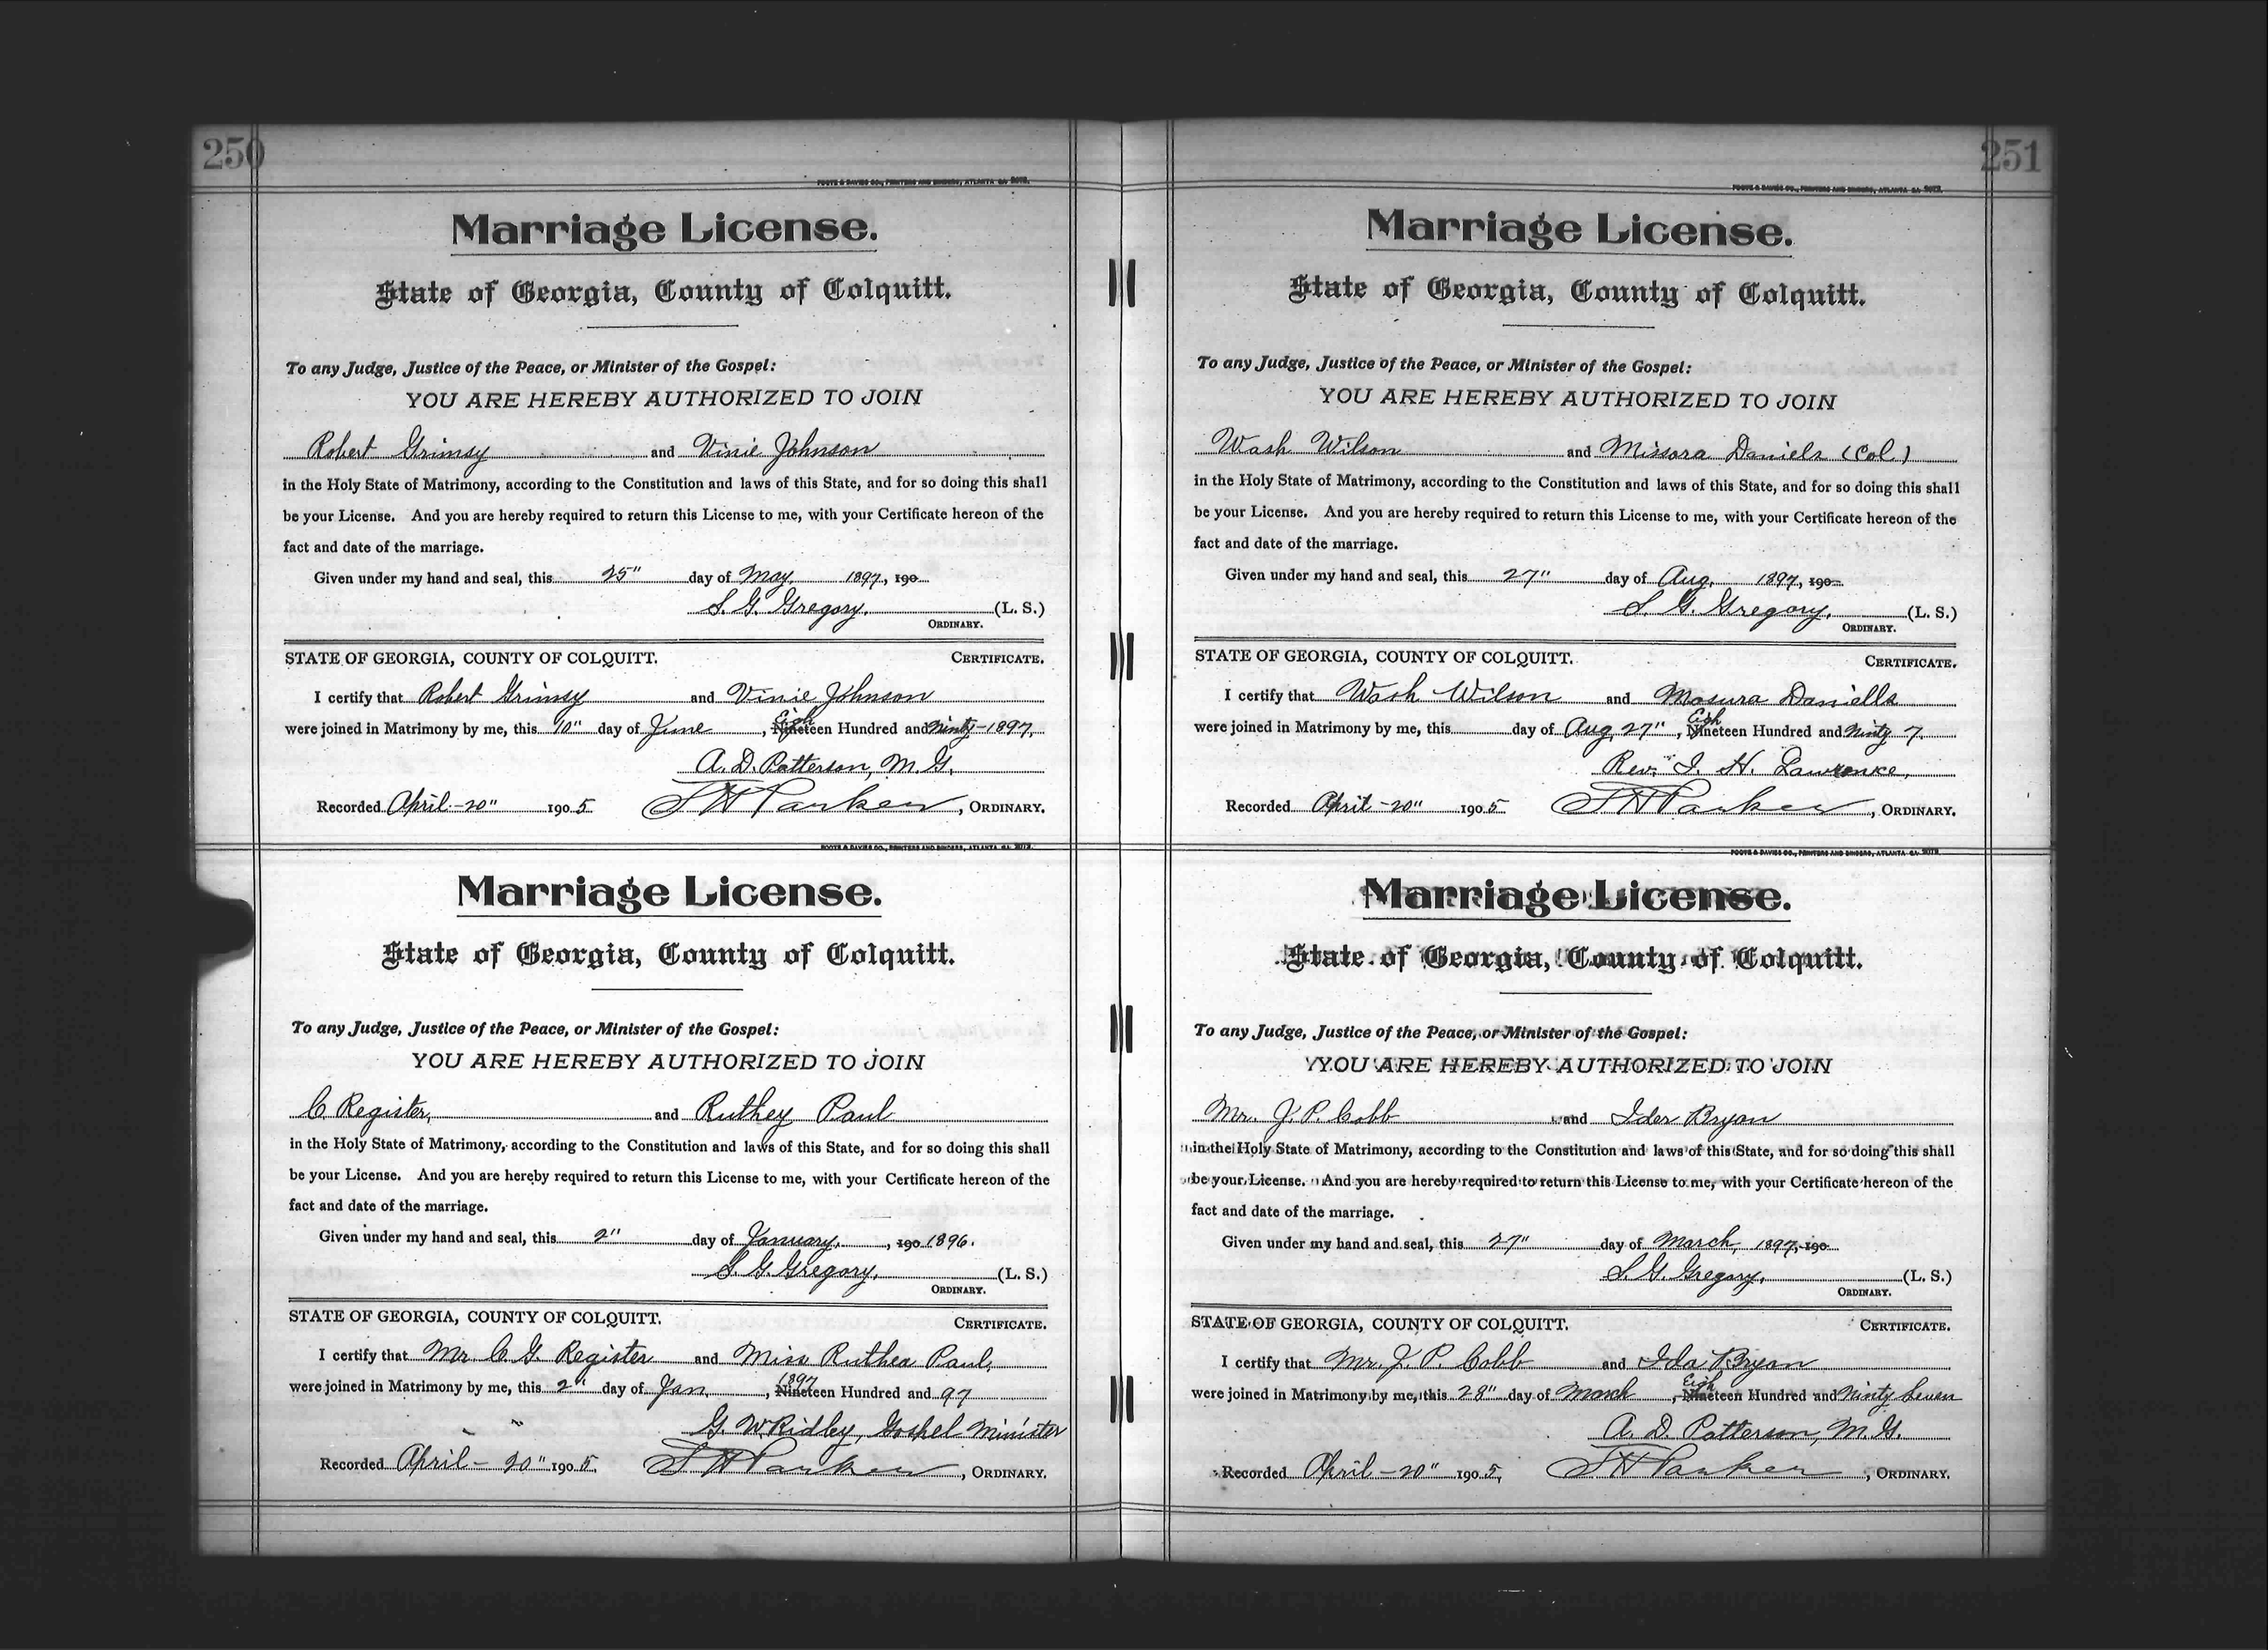 250
FOOTE & DAVIES CO., PRINTERS AND BINDERS, ATLANTA GA.
Marriage License.
State of Georgia, County of Colquitt.
To any Judge, Justice of the Peace, or Minister of the Gospel:
YOU ARE HEREBY AUTHORIZED TO JOIN
Robert Grimsy and Vinie Johnson
in the Holy State of Matrimony, according to the Constitution and laws of this State, and for so doing this shall
be your License. And you are hereby required to return this License to me, with your Certificate hereon of the
fact and date of the marriage.
Given under my hand and seal, this 25" day of May, 1897, 190
S. G. Gregory, (L. S.)
ORDINARY.
STATE OF GEORGIA, COUNTY OF COLQUITT. CERTIFICATE.
I certify that Robert Grimsy and Vinie Johnson
Eigh
were joined in Matrimony by me, this 10" day of June, Nineteen Hundred and Ninty-1897,
A. D. Patterson, M. G.
Recorded April-20" 1905 , ORDINARY.
FOOTE & DAVIES CO., PRINTERS AND BINDERS, ATLANTA GA.
Marriage License.
State of Georgia, County of Colquitt.
To any Judge, Justice of the Peace, or Minister of the Gospel:
YOU ARE HEREBY AUTHORIZED TO JOIN
C. Register, and Ruthey Paul
in the Holy State of Matrimony, according to the Constitution and laws of this State, and for so doing this shall
be your License. And you are hereby required to return this License to me, with your Certificate hereon of the
fact and date of the marriage.
Given under my hand and seal, this 2" day of January, , 190 1896.
S. G. Gregory, (L. S.)
ORDINARY.
STATE OF GEORGIA, COUNTY OF COLQUITT. CERTIFICATE.
I certify that Mr. C. G. Register and Miss Ruthea Paul,
1897
were joined in Matrimony by me, this 2" day of Jan, Nineteen Hundred and 97
G. W. Ridley, Gospel Minister
Recorded April-20" 1905. , ORDINARY.
251
FOOTE & DAVIES CO., PRINTERS AND BINDERS, ATLANTA GA.
Marriage License.
State of Georgia, County of Colquitt.
To any Judge, Justice of the Peace, or Minister of the Gospel:
YOU ARE HEREBY AUTHORIZED TO JOIN
Wash Wilson and Missora Daniels (Col.)
in the Holy State of Matrimony, according to the Constitution and laws of this State, and for so doing this shall
be your License. And you are hereby required to return this License to me, with your Certificate hereon of the
fact and date of the marriage.
Given under my hand and seal, this 27" day of Aug, 1897, 190
S. G. Gregory, (L. S.)
ORDINARY.
STATE OF GEORGIA, COUNTY OF COLQUITT. CERTIFICATE.
I certify that Wash Wilson and Mosura Daniells
Eigh
were joined in Matrimony by me, this day of Aug 27", Nineteen Hundred and Ninty 7.
Rev. I. H. Lawrence,
Recorded April-20" 1905 , ORDINARY.
FOOTE & DAVIES CO., PRINTERS AND BINDERS, ATLANTA GA.
Marriage License.
State of Georgia, County of Colquitt.
To any Judge, Justice of the Peace, or Minister of the Gospel:
YOU ARE HEREBY AUTHORIZED TO JOIN
Mr. J. P. Cobb and Ider Bryan
in the Holy State of Matrimony, according to the Constitution and laws of this State, and for so doing this shall
be your License. And you are hereby required to return this License to me, with your Certificate hereon of the
fact and date of the marriage.
Given under my hand and seal, this 27" day of March, 1897, 190
S. G. Gregory, (L. S.)
ORDINARY.
STATE OF GEORGIA, COUNTY OF COLQUITT. CERTIFICATE.
I certify that Mr. J. P. Cobb and Ida Bryan
Eigh
were joined in Matrimony by me, this 28" day of March, Nineteen Hundred and Ninty Seven
A. D. Patterson, M. G.
Recorded April-20" 1905, , ORDINARY.